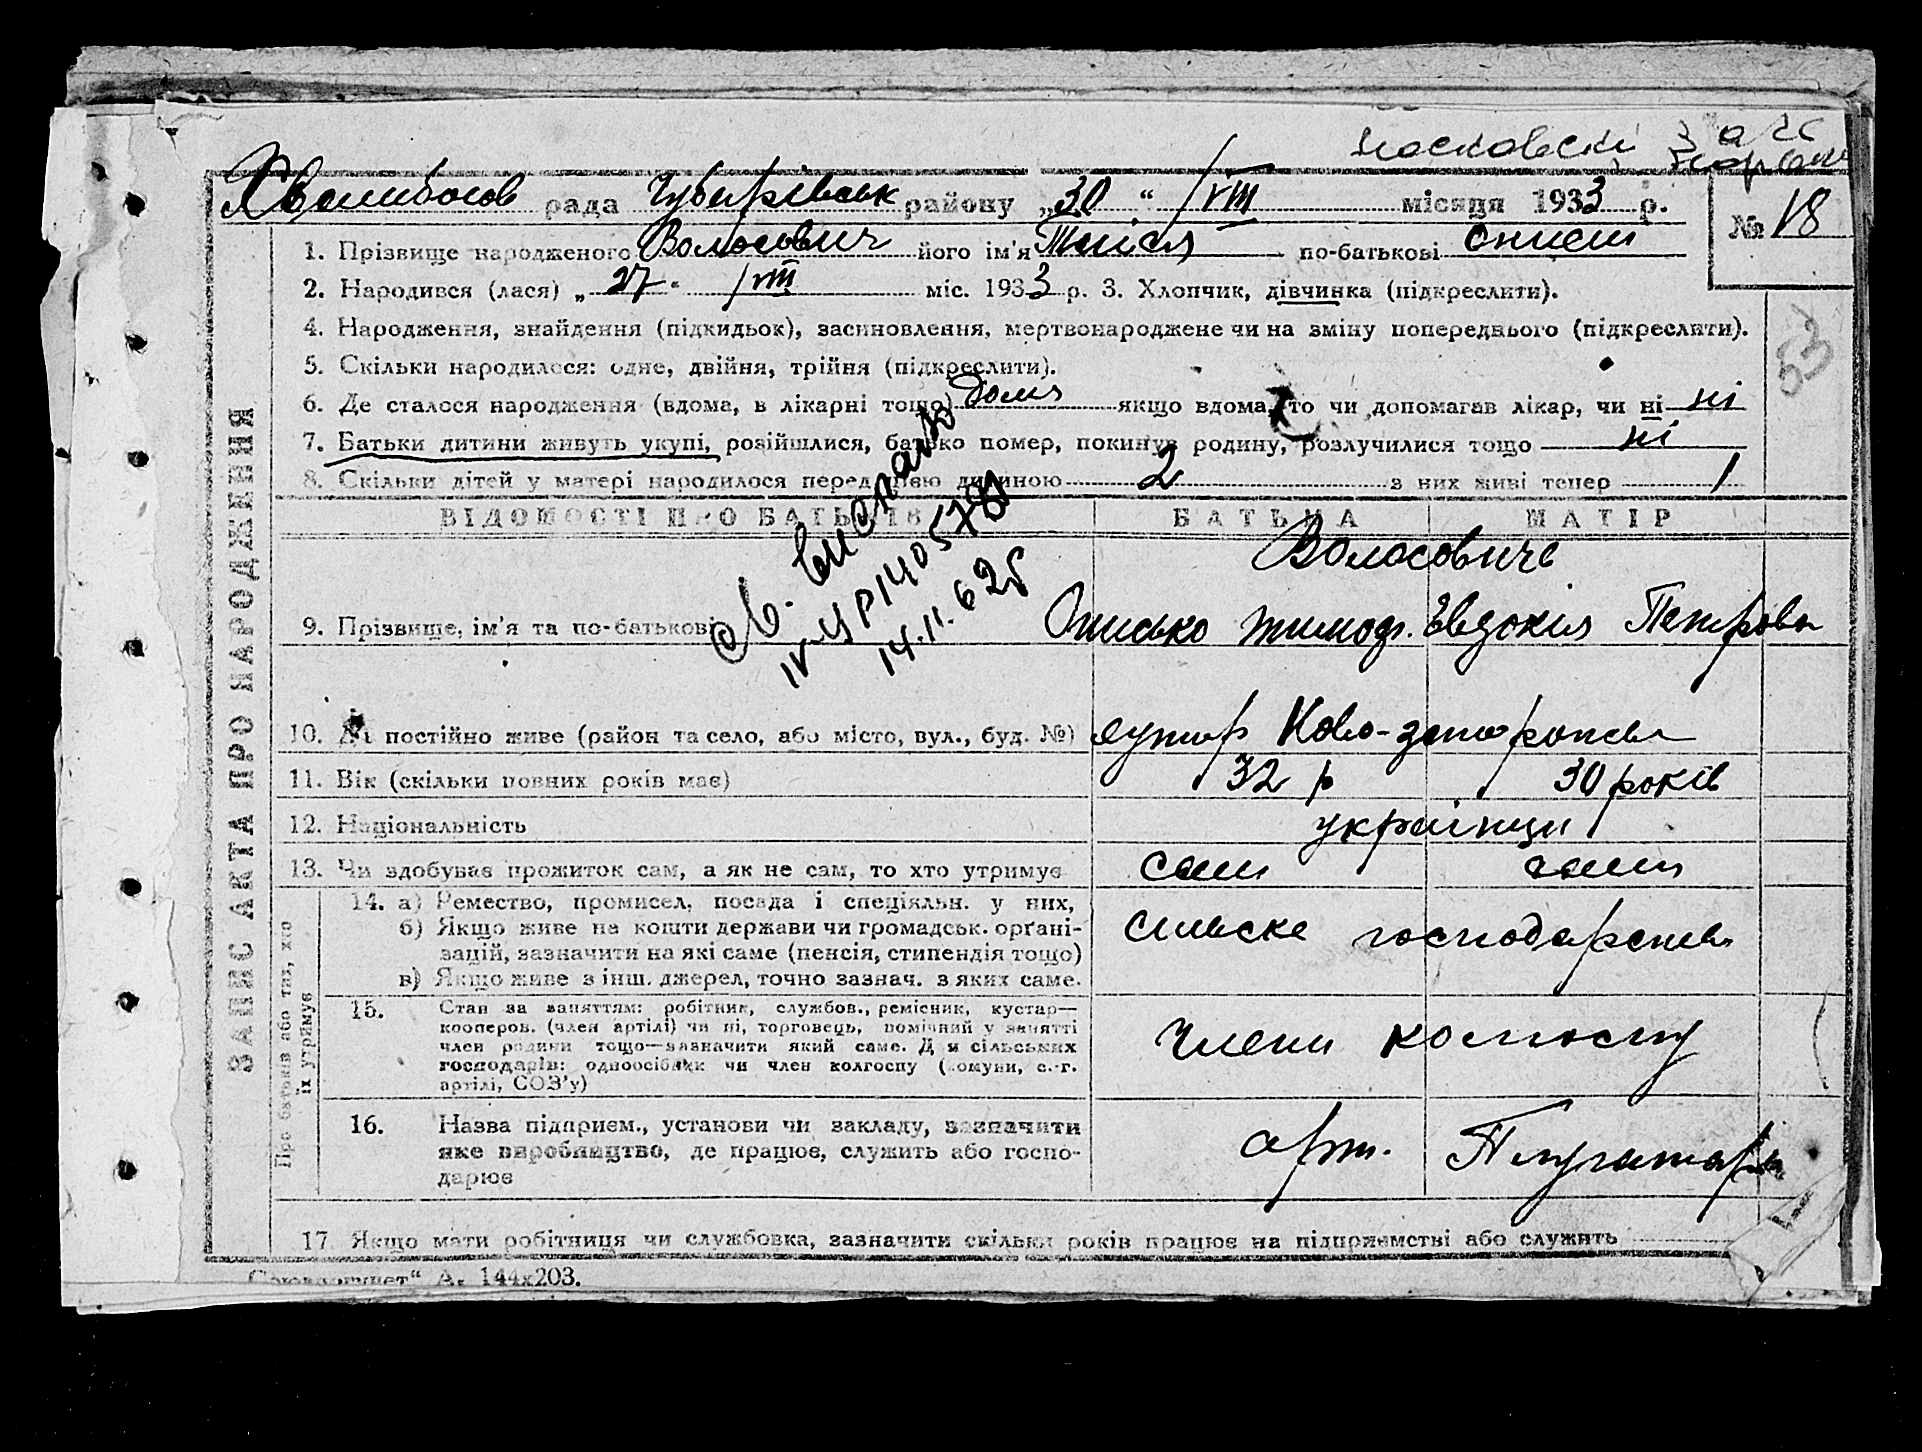 Хвалибогов рада Губарівськ району „30“ /VIII місяця 1933 р.
№ 18
1. Прізвище народженого Волосович його ім'я Таісія по-батькові
2. Народився (лася) „27“ /VIII міс. 1933 р. 3. Хлопчик, дівчинка (підкреслити).
53
4. Народження, знайдення (підкидьок), засиновлення, мертвонароджене чи на зміну попереднього (підкреслити).
5. Скільки народилося: одне, двійня, трійня (підкреслити).
6. Де сталося народження (вдома, в лікарні тощо) дома якщо вдома, то чи допомагав лікар, чи ні ні
7. Батьки дитини живуть укупі, розійшлися, батько помер, покинув родину, розлучилися тощо ні
8. Скільки дітей у матері народилося перед цією дитиною 2 з них живі тепер 1
ВІДОМОСТІ ПРО БАТЬКІВ БАТЬКА МАТІР
Св. вислано
IV-УР 1405781
14.11.62г
Волосовичі
9. Прізвище, ім'я та по-батькові Онисько Тимоф. Євдокія Петрова
10. Де постійно живе (район та село, або місто, вул., буд. №) хутор Ново-запорожск
11. Вік (скільки повних років має) 32 р 30 років
12. Національність українци
13. Чи здобуває прожиток сам, а як не сам, то хто утримує сам сама
14. а) Ремество, промисел, посада і спеціяльн. у них,
б) Якщо живе на кошти держави чи громадськ. організацій, зазначити на які саме (пенсія, стипендія тощо)
в) Якщо живе з інш. джерел, точно зазнач. з яких саме.
сільске господарство
15. Стан за заняттям: робітник, службов., ремісник, кустар—
кооперов. (член артілі) чи ні, торговець, помічний у занятті
член родини тощо—зазначити який саме. Для сільських
господарів: одноосібник чи член колгоспу (комуни, с.-г.
артілі, СОЗ'у)
Члени колгоспу
16. Назва підприєм., установи чи закладу, зазначити
яке виробництво, де працює, служить або господарює
арт. Плугатарь
17. Якщо мати робітниця чи службовка, зазначити скільки років працює на підприємстві або служить
А. 144х203.
ЗАПИС АКТА ПРО НАРОДЖЕННЯ
Про батьків або тих, хто
їх утримує